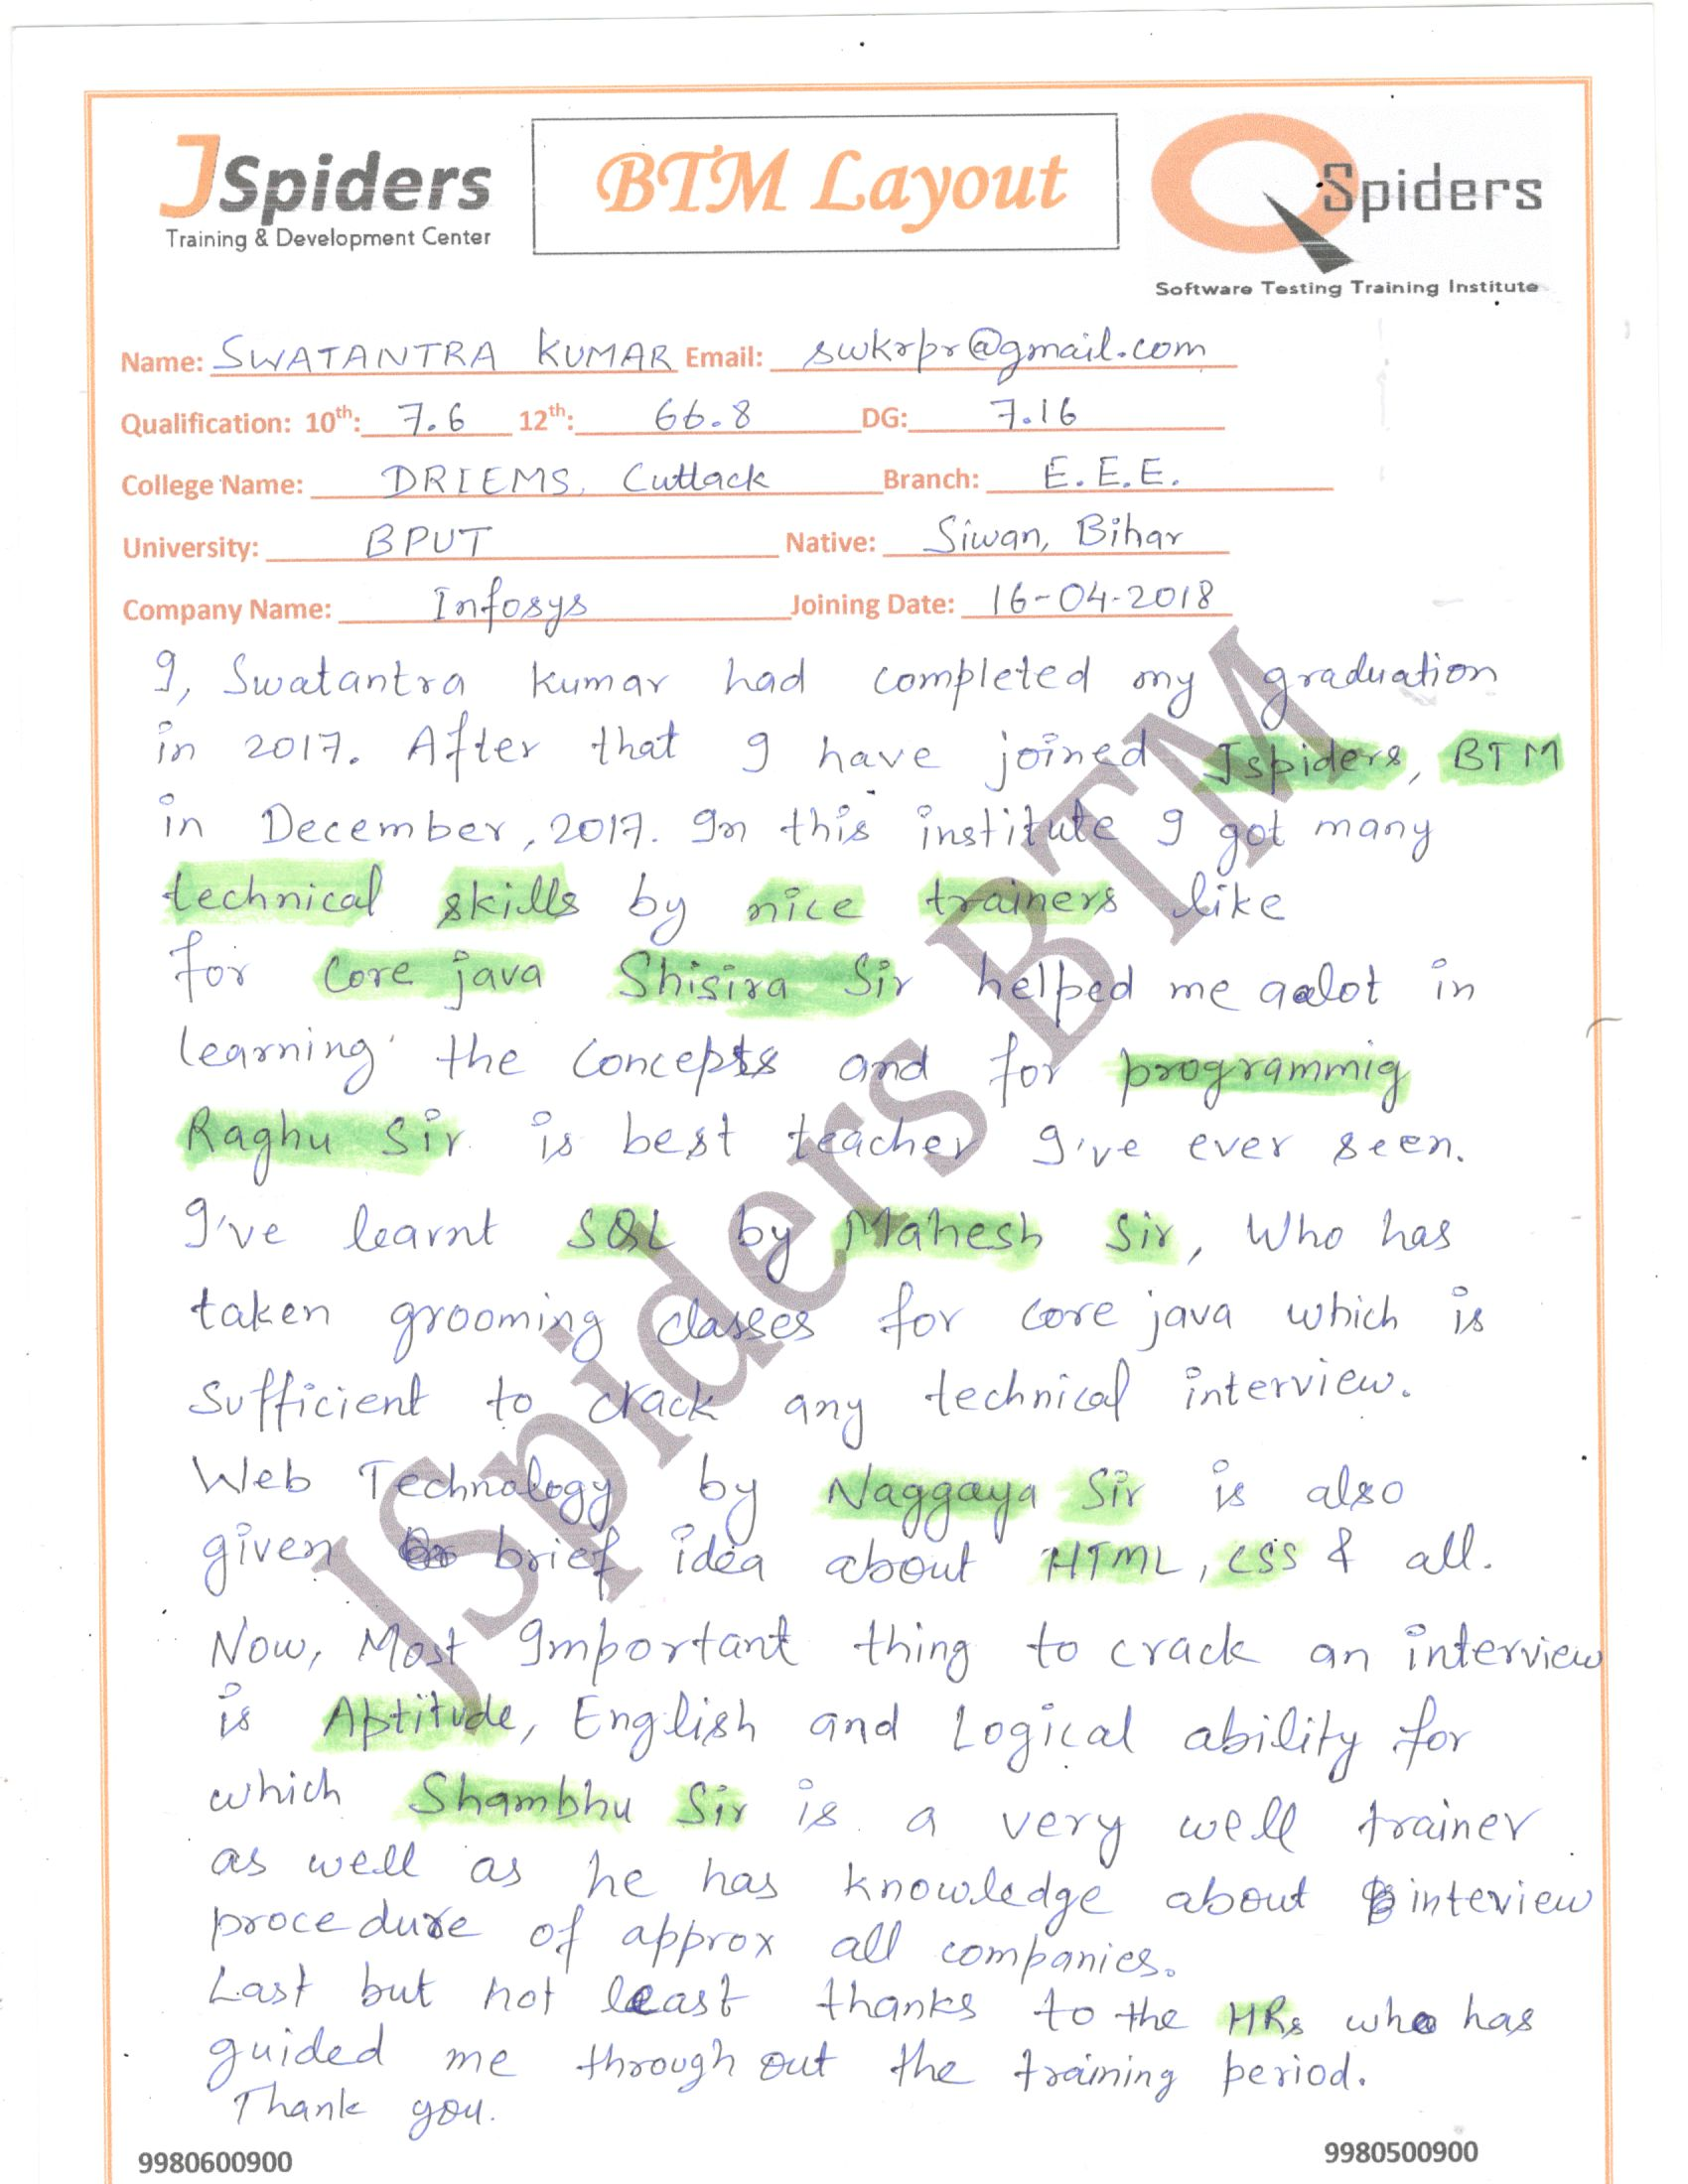 JSpiders
Training & Development Center
BTM Layout
QSpiders
Software Testing Training Institute
Name: SWATANTRA KUMAR Email: swkrpr@gmail.com
Qualification: 10th: 7.6 12th: 66.8 DG: 7.16
College Name: DRIEMS, Cuttack Branch: E.E.E.
University: BPUT Native: Siwan, Bihar
Company Name: Infosys Joining Date: 16-04-2018
I, Swatantra Kumar had completed my graduation
in 2017. After that I have joined Jspiders, BTM
in December, 2017. In this institute I got many
technical skills by nice trainers like
for Core java Shisira Sir helped me alot in
learning the concepts and for programmig
Raghu Sir is best teacher I've ever seen.
I've learnt SQL by Mahesh Sir, Who has
taken grooming classes for core java which is
sufficient to crack any technical interview.
Web Technology by Naggaya Sir is also
given brief idea about HTML, CSS & all.
Now, Most Important thing to crack an interview
is Aptitude, English and Logical ability for
which Shambhu Sir is a very well trainer
as well as he has knowledge about inteview
procedure of approx all companies.
Last but not least thanks to the HRs who has
guided me through out the training period.
Thank you.
JSpiders BTM
9980600900 9980500900